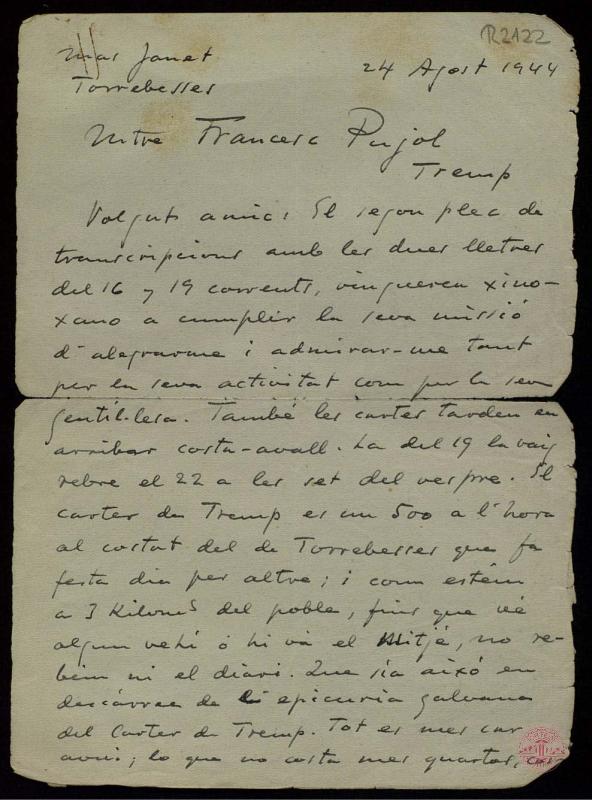 R2122
Mas Janet
24 Agost 1944
Torrebesses
Mtre Francesc Pujol
Tremp
Volgut amic: El segon plec de
transcripcions amb les dues lletres
del 16 y 19 corrents, vingueren xino-
xano a cumplir la seva missió
d'alegrarme i admirar-me tant
per la seva activitat com per la seva
gentil·lesa. També les cartes tarden en
arribar costa-avall. La del 19 la vaig
rebre el 22 a les set del vespre. El
carter de Tremp es un 500 a l'hora
al costat del de Torrebesses que fa
festa dia per altre; i com estém
a 3 Kiloms del poble, fins que vé
algun vehí ó hi vá el Mitjé, no re-
bém ni el diari. Que sía aixó en
descárrec de epicuria galvana
del Carter de Tremp. Tot es mes car
avui; lo que no costa mes quartos,